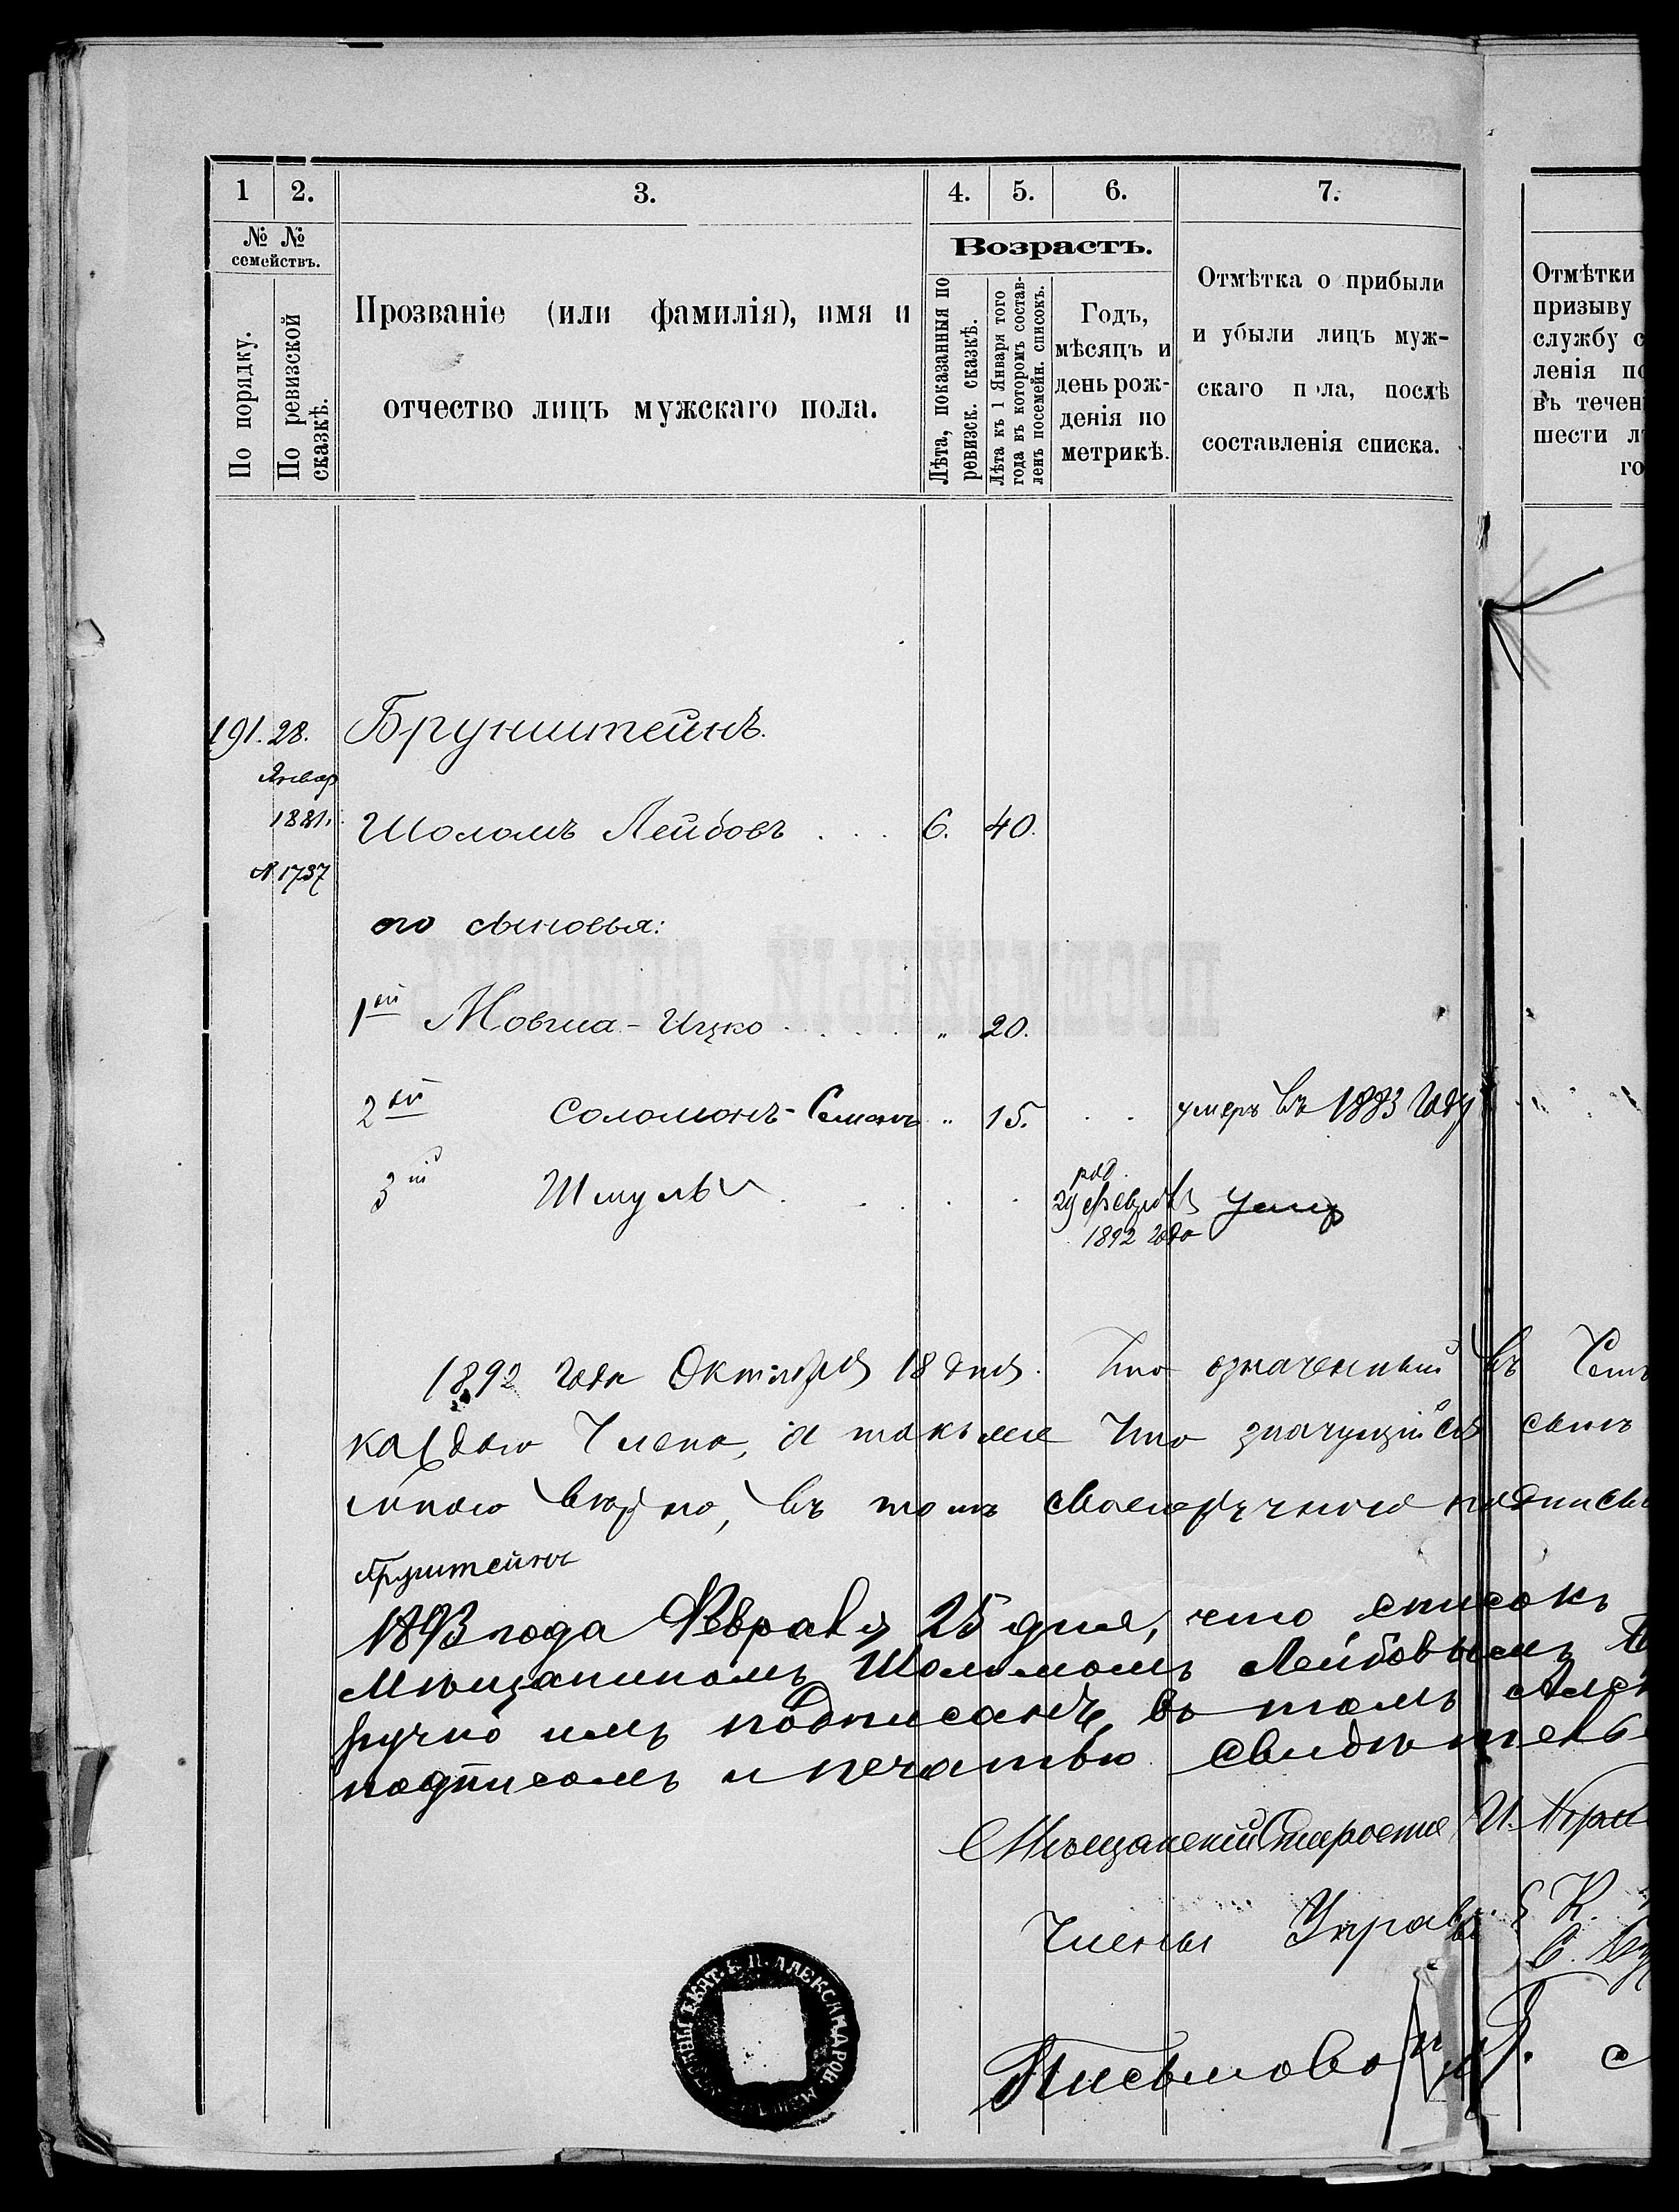 1 2. 3. 4. 5. 6. 7.
№ №
семействъ.
По порядку.
По ревизской
сказкѣ.
Прозваніе (или фамилія), имя и
отчество лицъ мужскаго пола.
Возрастъ.
Лѣта, показанныя по
ревизск. сказкѣ.
Лѣта къ 1 Января того
года въ которомъ состав-
ленъ посемейн. списокъ.
Годъ,
мѣсяцъ и
день рож-
денія по
метрикѣ.
Отмѣтка о прибыли
и убыли лицъ муж-
скаго пола, послѣ
составленія списка.
Отмѣтки
призыву
службу с
ленія по
въ течен
шести л
го
191. 28. Брунштейнъ.
Январ
1881.
Шоломъ Лейбовъ . . . 6. 40.
№ 1737
его сыновья:
1ый Мовша-Ицко . . . . „ 20.
2ой Соломонъ-Семенъ „ 15. . . умеръ въ 1883 году
3ій Шмуль . . . . .
род.
29 февраля
1892 года
умер
1892 года Октября 18 дня. Что означенный въ Сем
каждого Члена, а также Что значущійся сынъ
мною вѣрно, въ томъ своеручною подписью
1893 года Февраля 25 дня, что списокъ
Мѣщаниномъ Шоломомъ Лейбовымъ
ручно имъ подписанъ, въ томъ
подписомъ и печатью свидѣтель
Мѣщанскій Староста И.
Члены Управы { К.
С.
Письмово